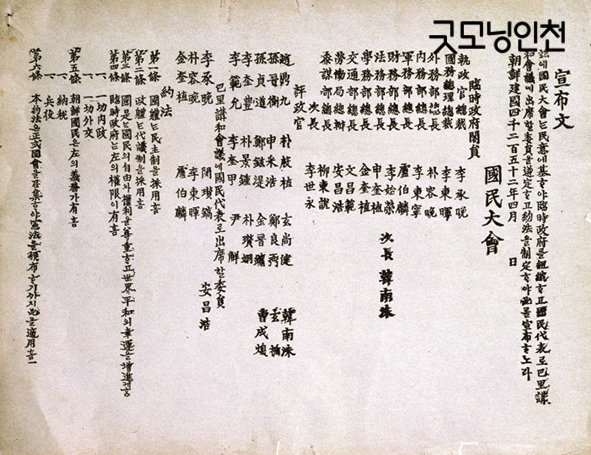 굿모닝인천
宣布文
玆에國民大會는民意에基하야臨時政府를組織하고國民代表로巴里講
和會議에出席할委員을選定하고約法을制定하야此를宣布하노라
朝鮮建國四千二百五十二年四月 日
國民大會
臨時政府閣員
執政官總裁 李承晩
國務總理總裁 李東輝
外務部總長 朴容晩
內務部總長 李東寧
軍務部總長 盧伯麟
財務部總長 李始榮 次長 韓南洙
法務部總長 申奎植
學務部總長 金奎植
交通部總長 文昌範
勞働局總辦 安昌浩
參謀部總長 柳東說
次長 李世永
評政官
趙鼎九 朴殷植 玄尙健 韓南洙
孫晋衡 申采浩 鄭良弼 玄楯
孫貞道 鄭鉉湜 金晋鏞 曹成煥
李奎豊 朴景鍾 朴瓚翊
李範允 李奎甲 尹解
巴里講和會議에國民代表로出席할委員
李承晩 閔瓚鎬 安昌浩
朴容晩 李東輝
金奎植 盧伯麟
約法
第一條 國體는民主制를採用홈
第二條 政體는代議制를採用홈
第三條 國是는國民의自由와權利를尊重하고世界平和의幸運을增進케홈
第四條 臨時政府는左의權限이有홈
一、一切內政
一、一切外交
第五條 朝鮮國民은左의義務가有홈
一、納稅
一、兵役
第六條 本約法은正式國會를召集하야憲法을頒布하기까지此를適用홈